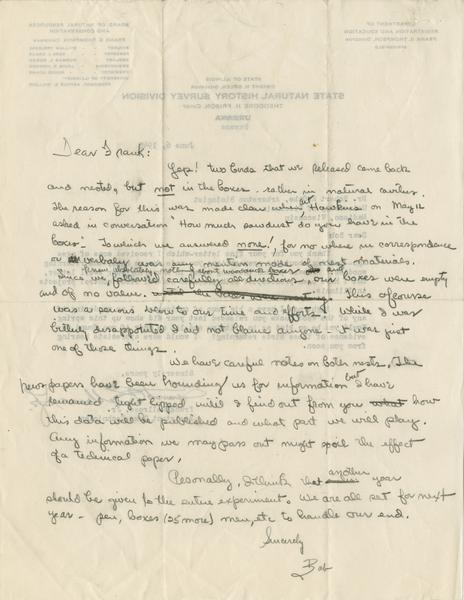 Dear Frank:
Yep! two birds that we released came back
and nested, but not in the boxes - rather in natural cavities.
The reason for this was made clear when Art Hawkins on May 12
asked in conversation "How much sawdust do you have in the
boxes". To which we answered none!, for no where in correspondence
or verbally was any mention made of nest materials.
Since we knew absolutely nothing about woodduck boxes and
followed carefully all directions, our boxes were empty
and of no value. This of course
was a serious blow to our time and efforts & while I was
bitterly disappointed I did not blame anyone - it was just
one of those things.
We have careful notes on both nests. The
newspapers have been hounding us for information but I have
remained tight lipped until I find out from you how
this data will be published and what part we will play.
Any information we may pass out might spoil the effect
of a technical paper.
Personally, I think that another year
should be given to the entire experiment. We are all set for next
year - pen, boxes (25 more) men, etc to handle our end.
Sincerely
Bob
STATE OF ILLINOIS
DWIGHT H. GREEN, GOVERNOR
STATE NATURAL HISTORY SURVEY DIVISION
THEODORE H. FRISON, CHIEF
URBANA
BOARD OF NATURAL RESOURCES
AND CONSERVATION
FRANK G. THOMPSON, CHAIRMAN
DEPARTMENT OF
REGISTRATION AND EDUCATION
FRANK G. THOMPSON, DIRECTOR
SPRINGFIELD